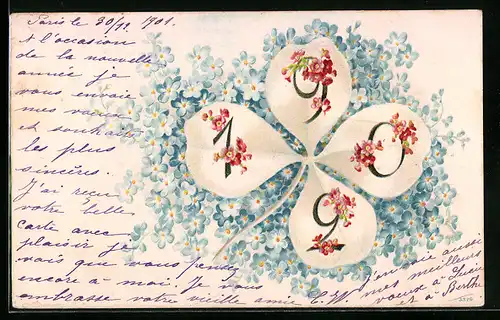 Paris le 30/12 1901.
A l'occasion
de la nouvelle
année je
vous envoie
mes vœux
et souhaits
les plus
sincères.
J'ai reçu
votre belle
carte avec
plaisir je
vois que vous pensez
encore à moi. Je vous
embrasse votre vieille amie E. W.
J'envoie aussi
mes meilleurs
vœux à Lucie
et à Berthe
1
9
0
9